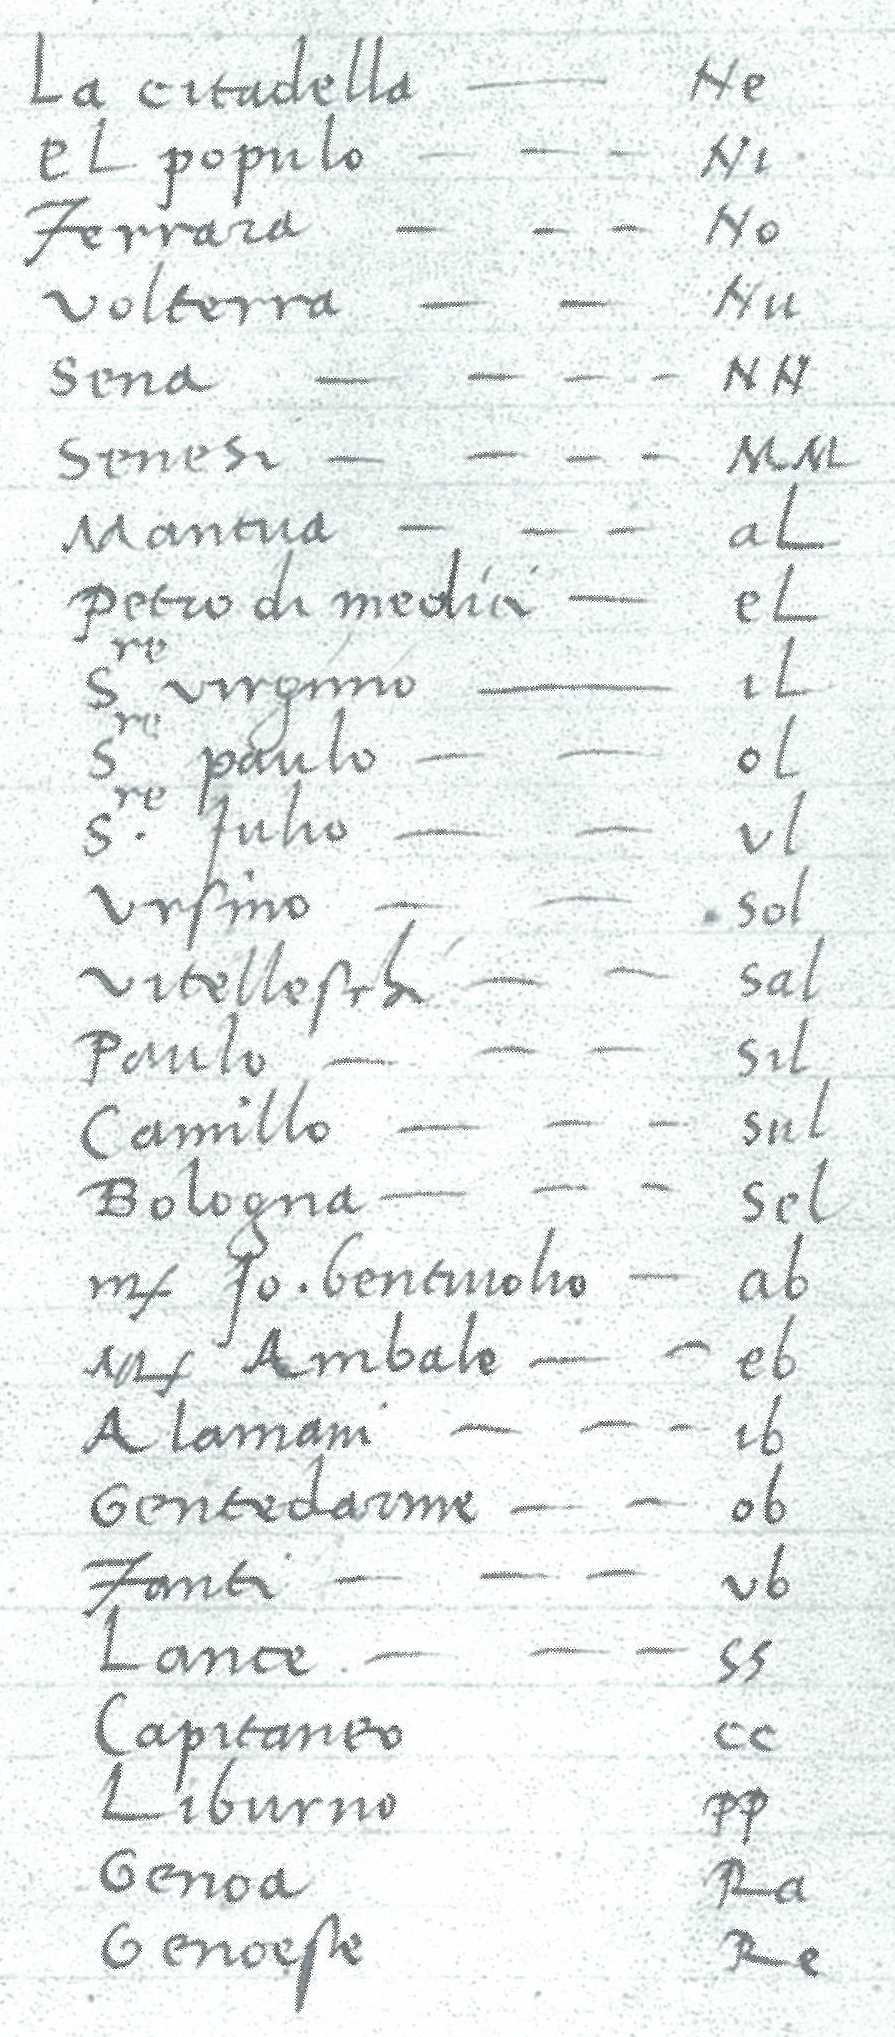 La citadella — Ne
el populo — — — Ni
Ferrara — — — No
Volterra — — Nu
Sena — — — — NN
Senesi — — — — MM
Mantua — — — aL
petro di medici — eL
Sre virginio — iL
Sre paulo — — oL
Sre. Julio — — vl
Vrsino — — . sol
Vitelleschi — — sal
Paulo — — — sil
Camillo — — — sul
Bologna — — — sel
Jo. bentiuolio — ab
Anibale — — eb
Alamani — — — ib
Gentedarme — — ob
Fanti — — — vb
Lance — — — ss
Capitaneo cc
Liburno pp
Genoa Ra
Genoese Re